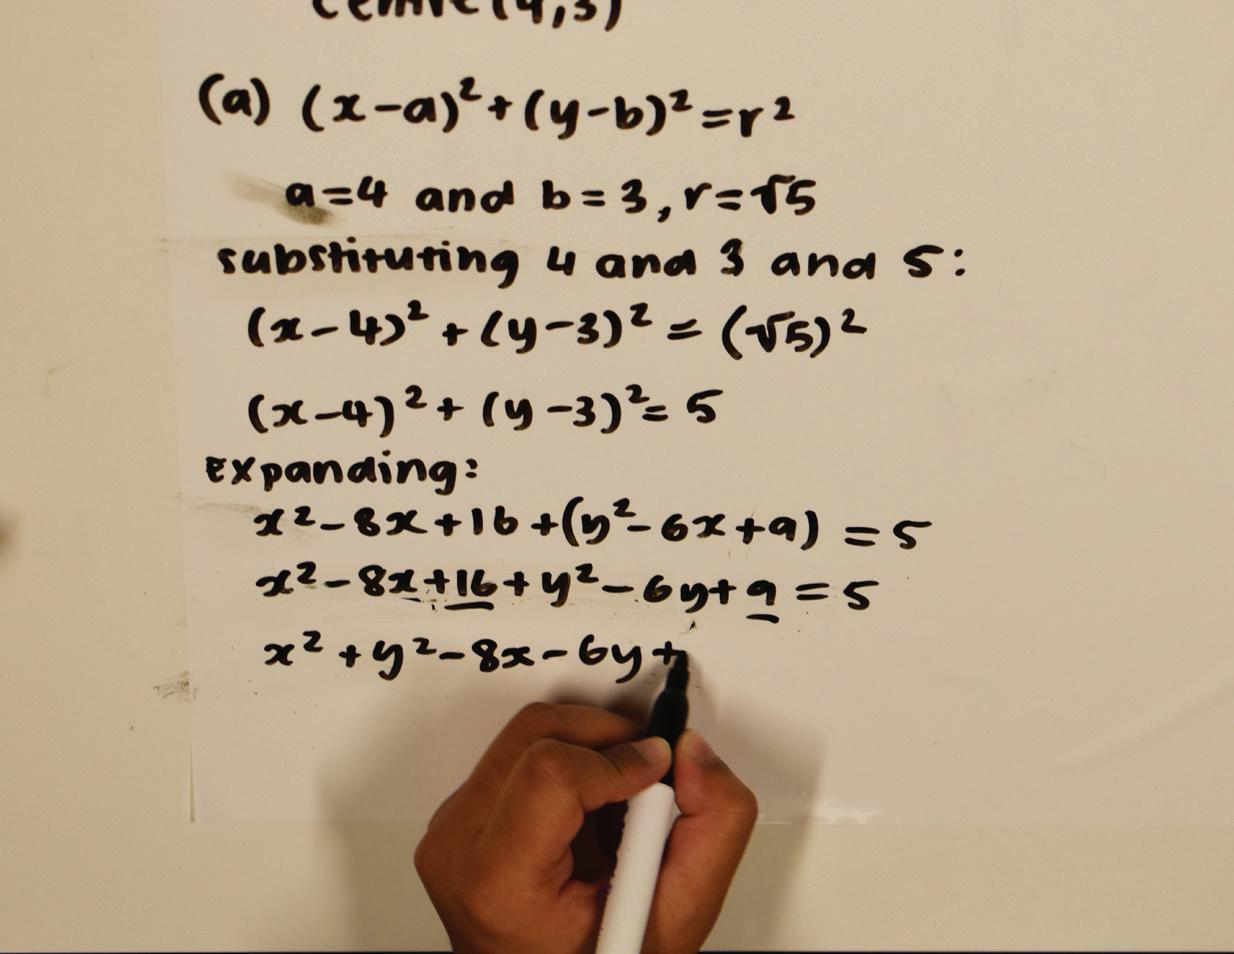 centre (4,3)
(a) (x-a)² + (y-b)² = r²
a=4 and b=3, r=√5
substituting 4 and 3 and 5:
(x-4)² + (y-3)² = (√5)²
(x-4)² + (y-3)² = 5
expanding:
x² - 8x + 16 + (y² - 6x + 9) = 5
x² - 8x + 16 + y² - 6y + 9 = 5
x² + y² - 8x - 6y +